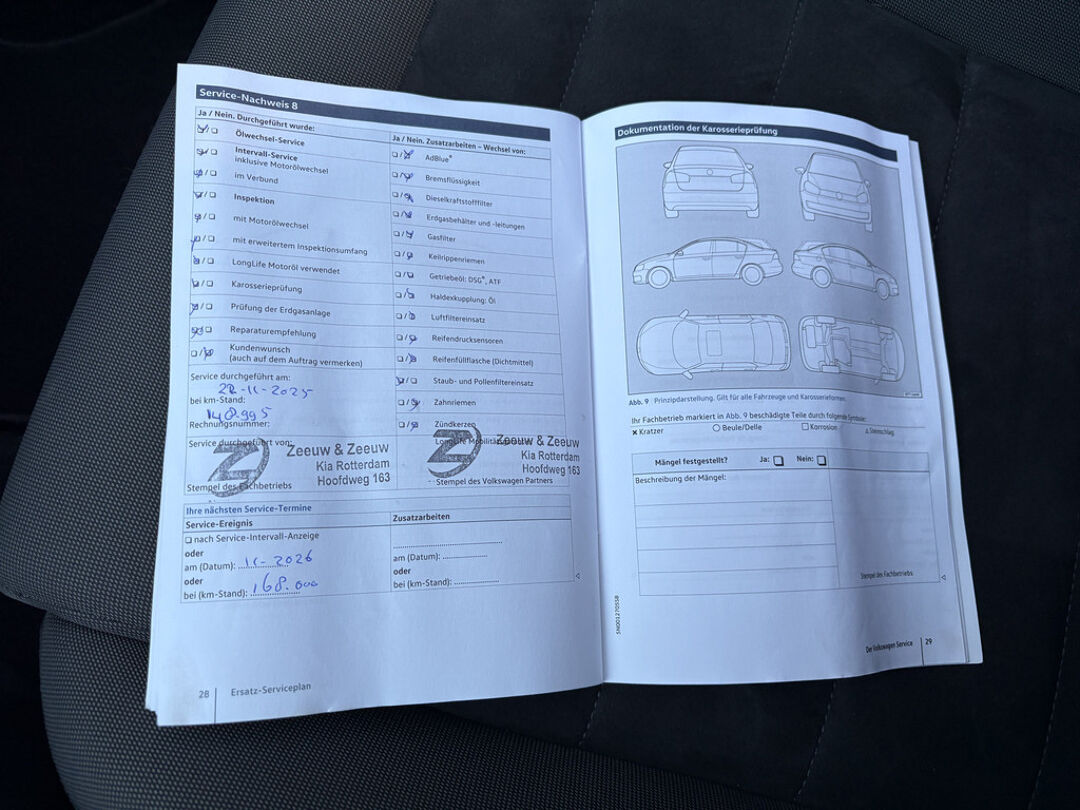 Service-Nachweis 8
Ja / Nein. Durchgeführt wurde:
Ölwechsel-Service
Intervall-Service
inklusive Motorölwechsel
im Verbund
Inspektion
mit Motorölwechsel
mit erweitertem Inspektionsumfang
LongLife Motoröl verwendet
Karosserieprüfung
Prüfung der Erdgasanlage
Reparaturempfehlung
Kundenwunsch
(auch auf dem Auftrag vermerken)
Ja / Nein. Zusatzarbeiten – Wechsel von:
AdBlue®
Bremsflüssigkeit
Dieselkraftstofffilter
Erdgasbehälter und -leitungen
Gasfilter
Keilrippenriemen
Getriebeöl: DSG®, ATF
Haldexkupplung: Öl
Luftfiltereinsatz
Reifendrucksensoren
Reifenfüllflasche (Dichtmittel)
Staub- und Pollenfiltereinsatz
Zahnriemen
Zündkerzen
Service durchgeführt am:
22-11-2025
bei km-Stand:
148.995
Rechnungsnummer:
Service durchgeführt von:
Zeeuw & Zeeuw
Kia Rotterdam
Hoofdweg 163
Stempel des Fachbetriebs
Zeeuw & Zeeuw
Kia Rotterdam
Hoofdweg 163
Stempel des Volkswagen Partners
Ihre nächsten Service-Termine
Service-Ereignis
Zusatzarbeiten
nach Service-Intervall-Anzeige
oder
am (Datum): 11-2026
oder
bei (km-Stand): 168.000
am (Datum):
oder
bei (km-Stand):
28 Ersatz-Serviceplan
Dokumentation der Karosserieprüfung
Abb. 9 Prinzipdarstellung. Gilt für alle Fahrzeuge und Karosserieformen.
Ihr Fachbetrieb markiert in Abb. 9 beschädigte Teile durch folgende Symbole:
Kratzer
Beule/Delle
Korrosion
Steinschlag
Mängel festgestellt? Ja: Nein:
Beschreibung der Mängel:
Stempel des Fachbetriebs
5N001270558
Der Volkswagen Service 29